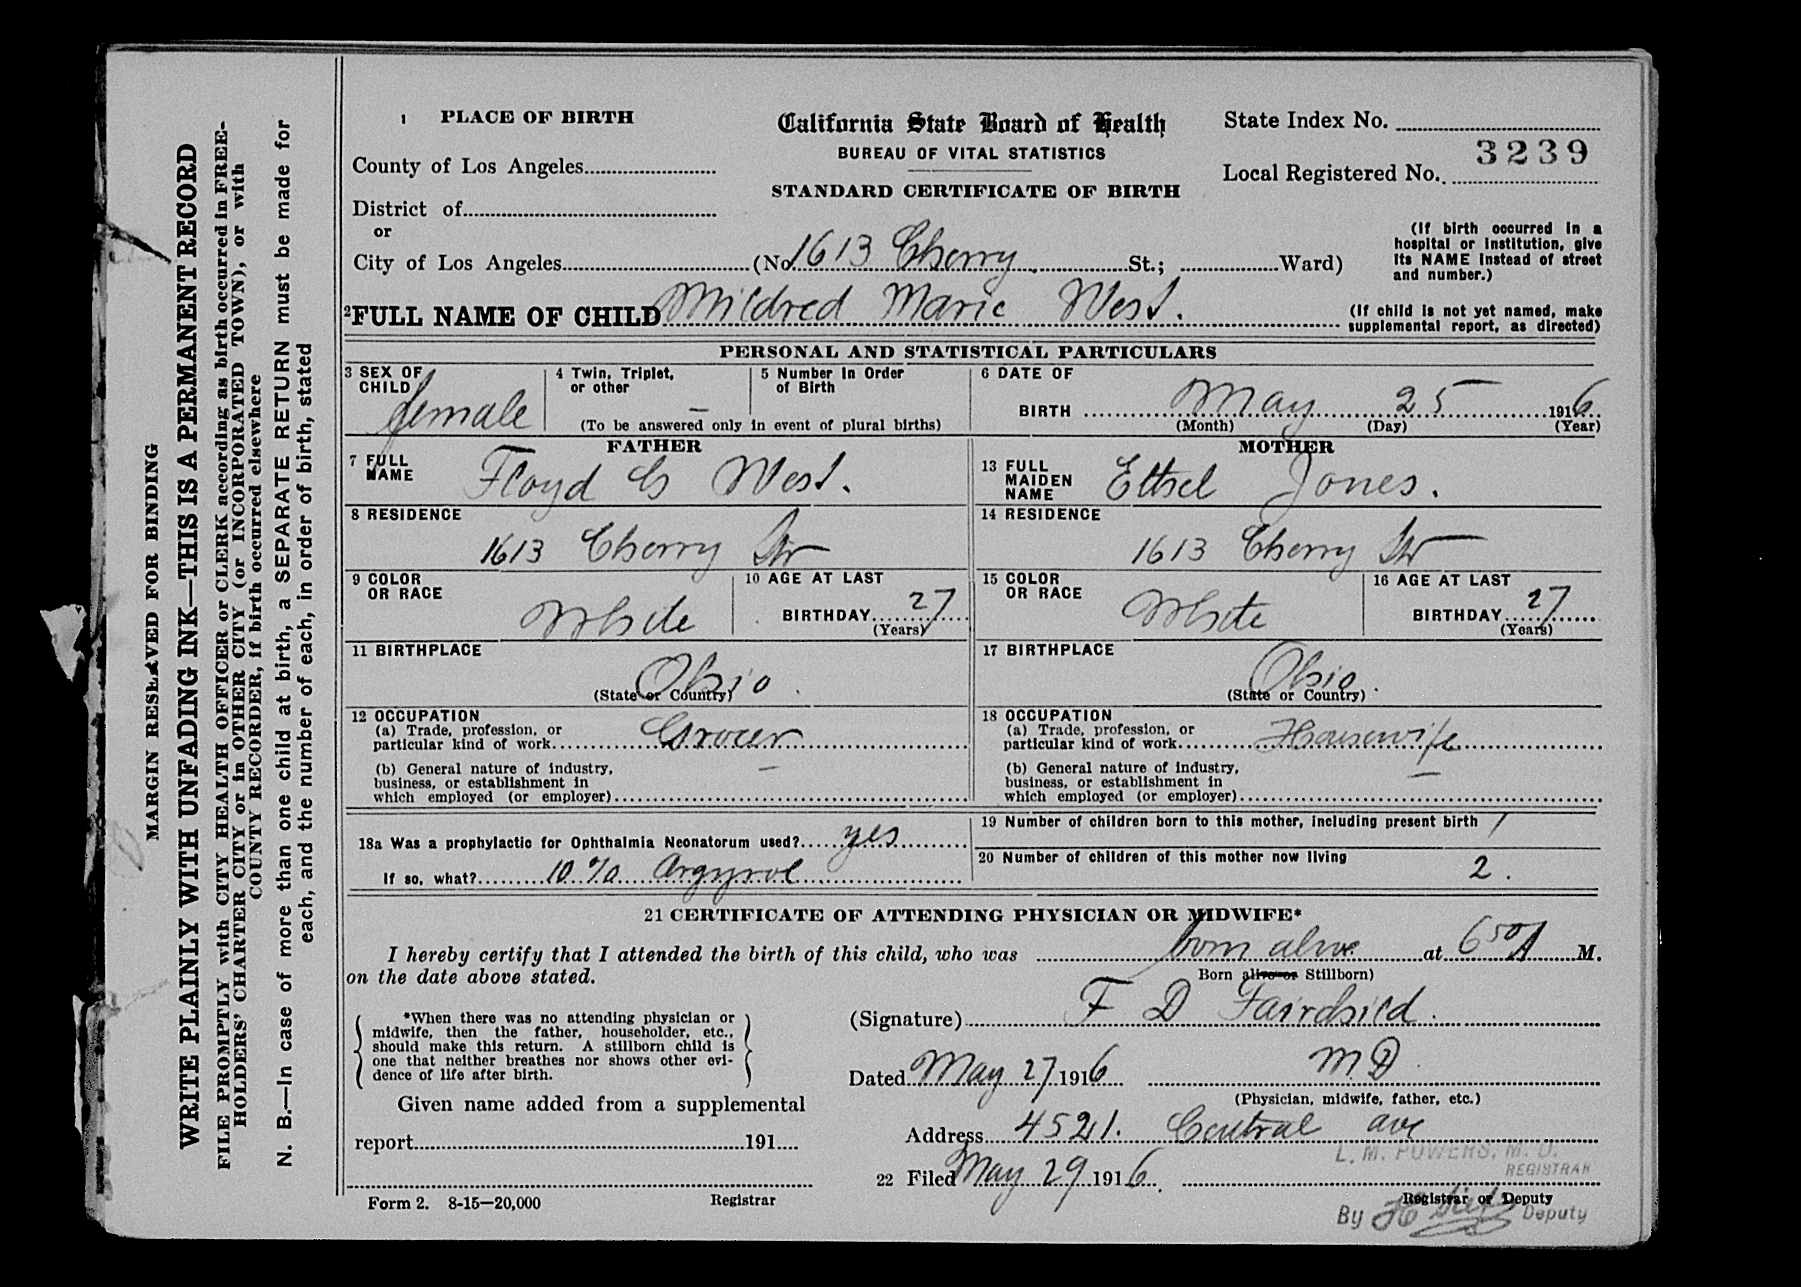 MARGIN RESERVED FOR BINDING
WRITE PLAINLY WITH UNFADING INK—THIS IS A PERMANENT RECORD
FILE PROMPTLY with CITY HEALTH OFFICER or CLERK according as birth occurred in FREE-
HOLDERS' CHARTER CITY or in OTHER CITY (or INCORPORATED TOWN), or with
COUNTY RECORDER, if birth occurred elsewhere
N. B.—In case of more than one child at birth, a SEPARATE RETURN must be made for
each, and the number of each, in order of birth, stated
1 PLACE OF BIRTH
County of Los Angeles
District of
or
City of Los Angeles (No 1613 Cherry St.; Ward)
California State Board of Health
BUREAU OF VITAL STATISTICS
STANDARD CERTIFICATE OF BIRTH
State Index No.
Local Registered No. 3239
(If birth occurred in a
hospital or institution, give
its NAME instead of street
and number.)
2 FULL NAME OF CHILD Mildred Marie West.
(If child is not yet named, make
supplemental report, as directed)
PERSONAL AND STATISTICAL PARTICULARS
3 SEX OF
CHILD female
4 Twin, Triplet,
or other
5 Number in Order
of Birth
—
(To be answered only in event of plural births)
6 DATE OF
BIRTH May 25 1916
(Month) (Day) (Year)
FATHER
7 FULL
NAME Floyd G West.
8 RESIDENCE
1613 Cherry Str
9 COLOR
OR RACE White
10 AGE AT LAST
BIRTHDAY 27
(Years)
11 BIRTHPLACE
Ohio
(State or Country)
12 OCCUPATION
(a) Trade, profession, or
particular kind of work Grocer
(b) General nature of industry, —
business, or establishment in
which employed (or employer)
MOTHER
13 FULL
MAIDEN
NAME Ethel Jones.
14 RESIDENCE
1613 Cherry Str
15 COLOR
OR RACE White
16 AGE AT LAST
BIRTHDAY 27
(Years)
17 BIRTHPLACE
Ohio.
(State or Country)
18 OCCUPATION
(a) Trade, profession, or
particular kind of work Housewife
(b) General nature of industry, —
business, or establishment in
which employed (or employer)
18a Was a prophylactic for Ophthalmia Neonatorum used? yes
If so, what? 10 % Argyrol
19 Number of children born to this mother, including present birth 1
20 Number of children of this mother now living
2.
21 CERTIFICATE OF ATTENDING PHYSICIAN OR MIDWIFE*
I hereby certify that I attended the birth of this child, who was born alive at 6 50 A M.
on the date above stated.
Born alive or Stillborn)
*When there was no attending physician or
midwife, then the father, householder, etc.,
should make this return. A stillborn child is
one that neither breathes nor shows other evi-
dence of life after birth.
(Signature) F D Fairchild.
Dated May 27 1916 M.D
(Physician, midwife, father, etc.)
Given name added from a supplemental
report 191
Address 4521. Central ave
22 Filed May 29 1916.
L. M. POWERS, M. D.
REGISTRAR
Registrar
Registrar or Deputy
By Deputy
Form 2. 8-15—20,000